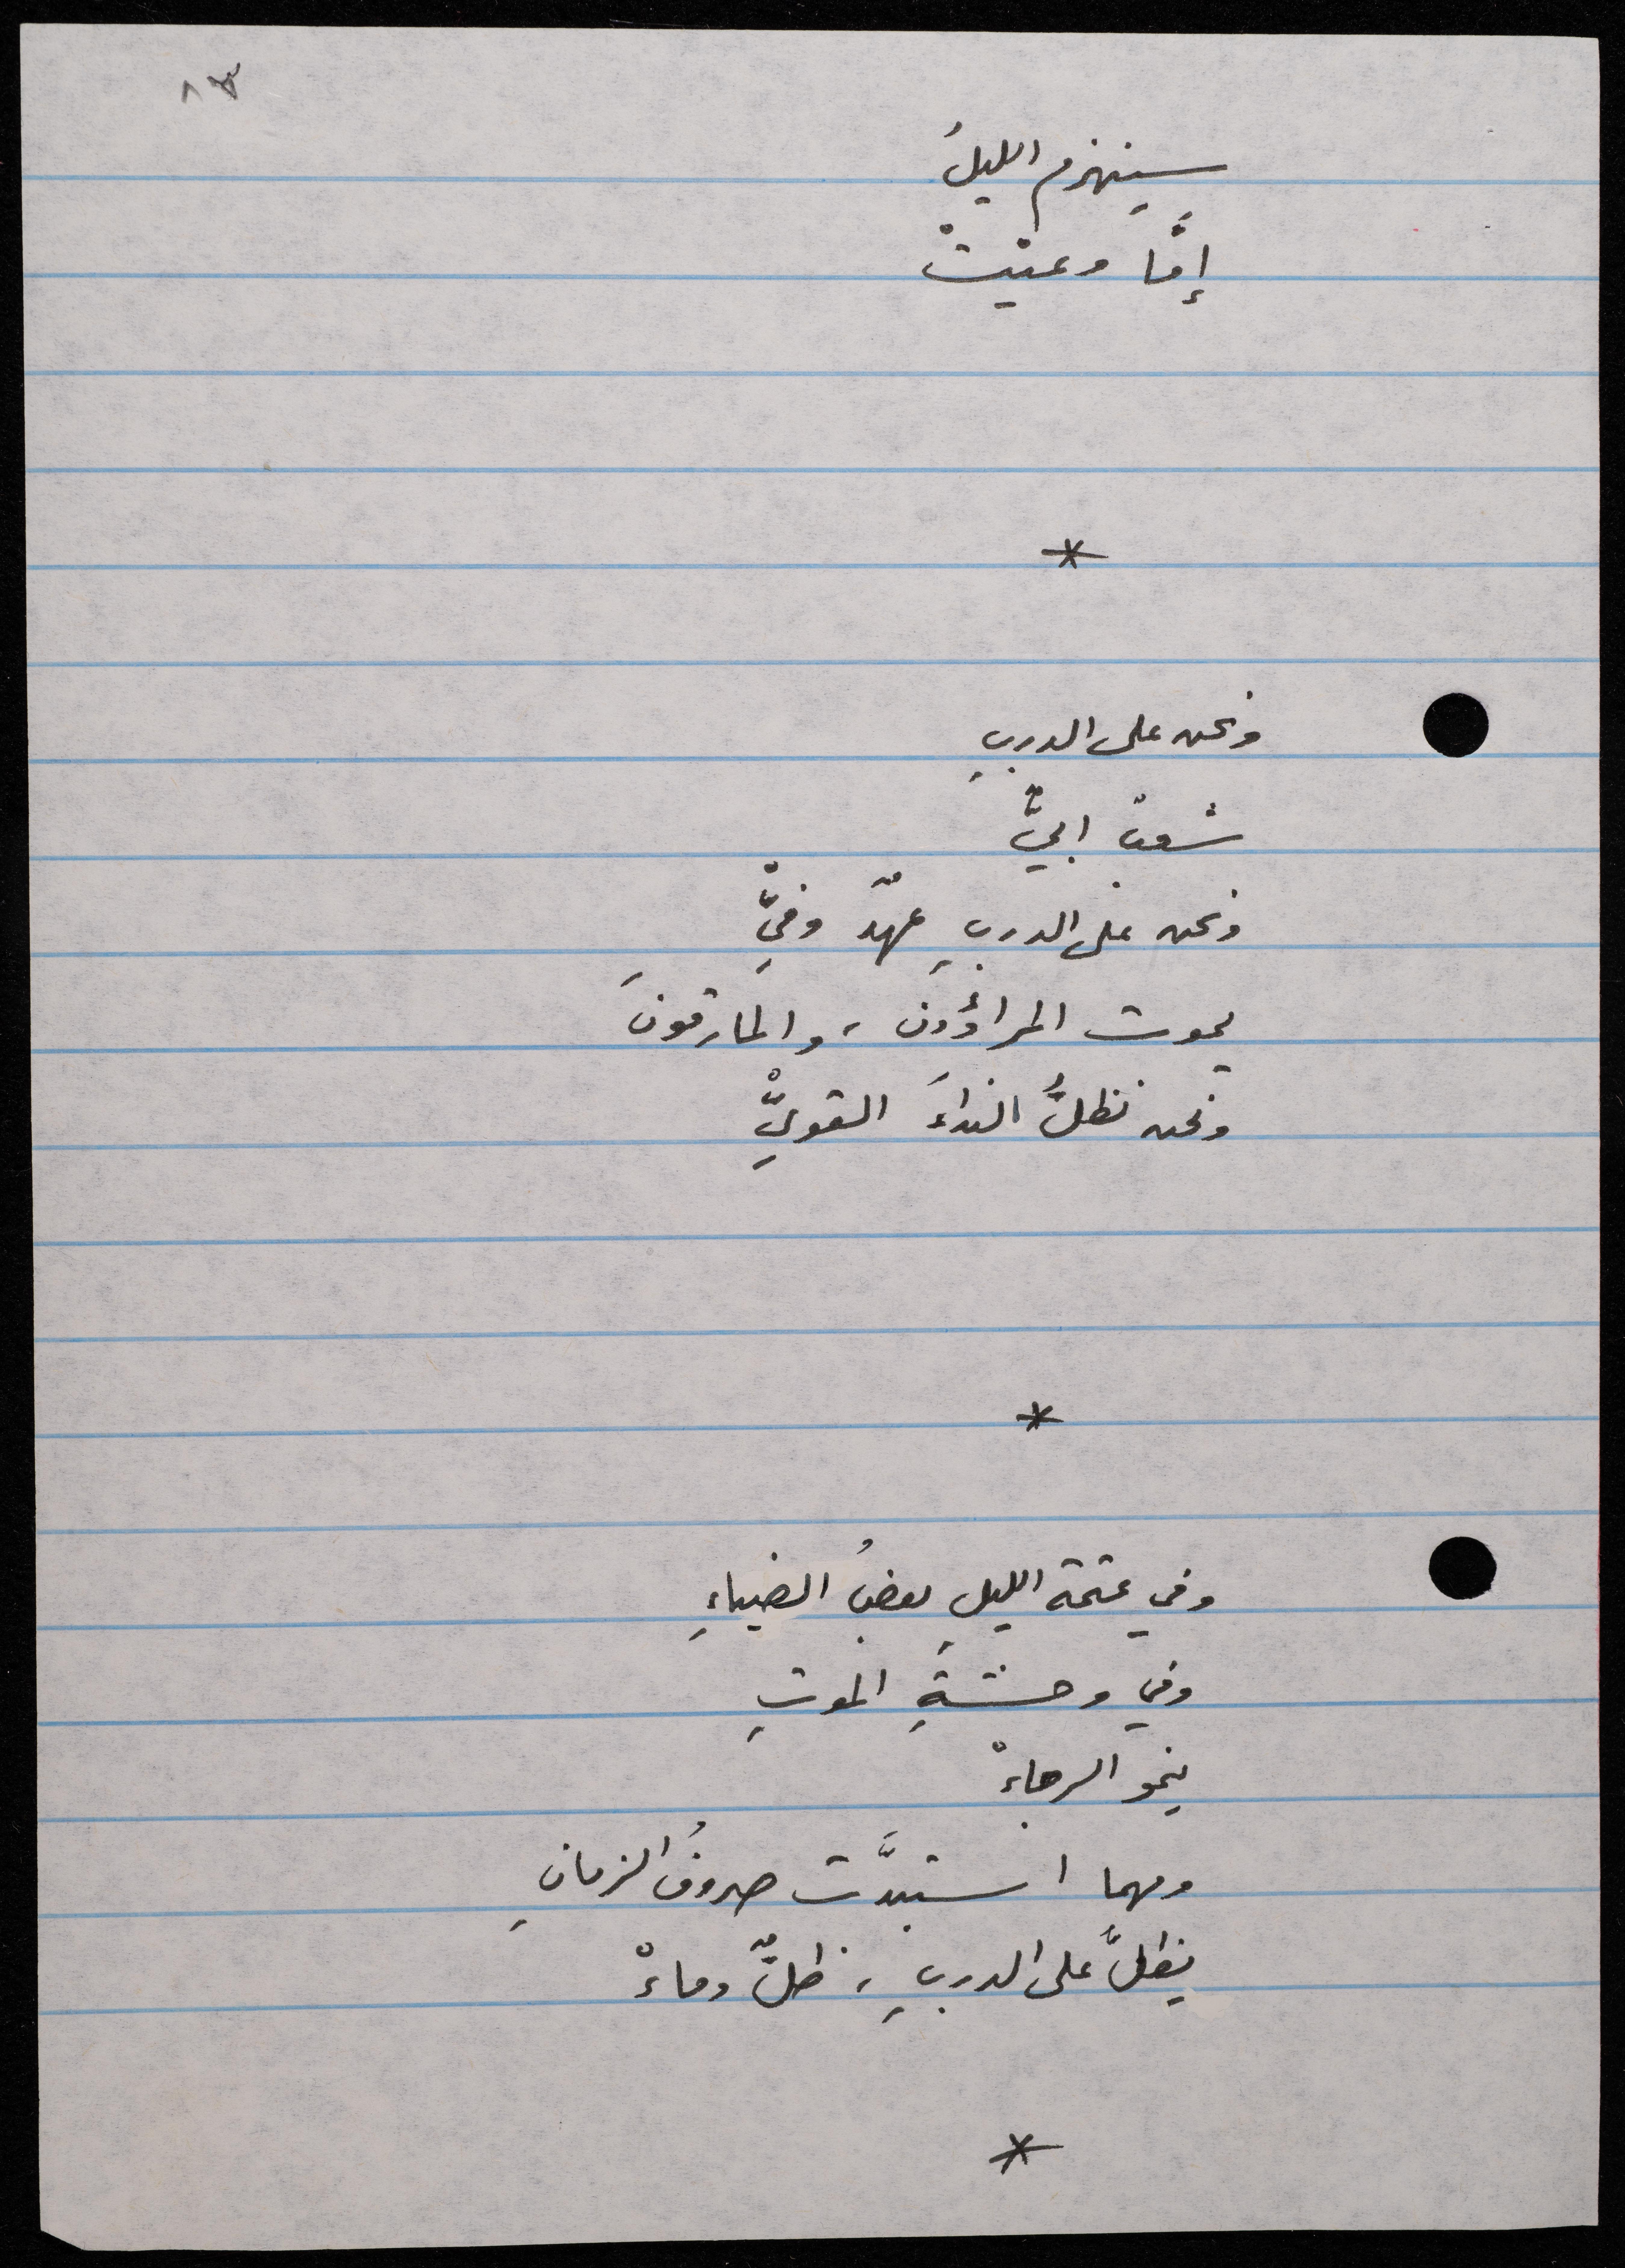 سينهزم الليلُ
إمَّا وعيْتْ
*
ونحن على الدربِ
شعبٌ ابيٌّ
ونحن على الدربِ عهدٌ وفيّْ
يموت المراؤون، والمارقونَ
ونحن نظلُّ النداءَ القويّْ
*
وفي عتمة الليلِ بعضُ الضياءِ
وفي وحشةِ الموتِ
ينمو الرجاءْ
ومهما استبدَّت صروفُ الزمانِ
يظلُّ على الدربِ، ظلٌّ وماءْ
*